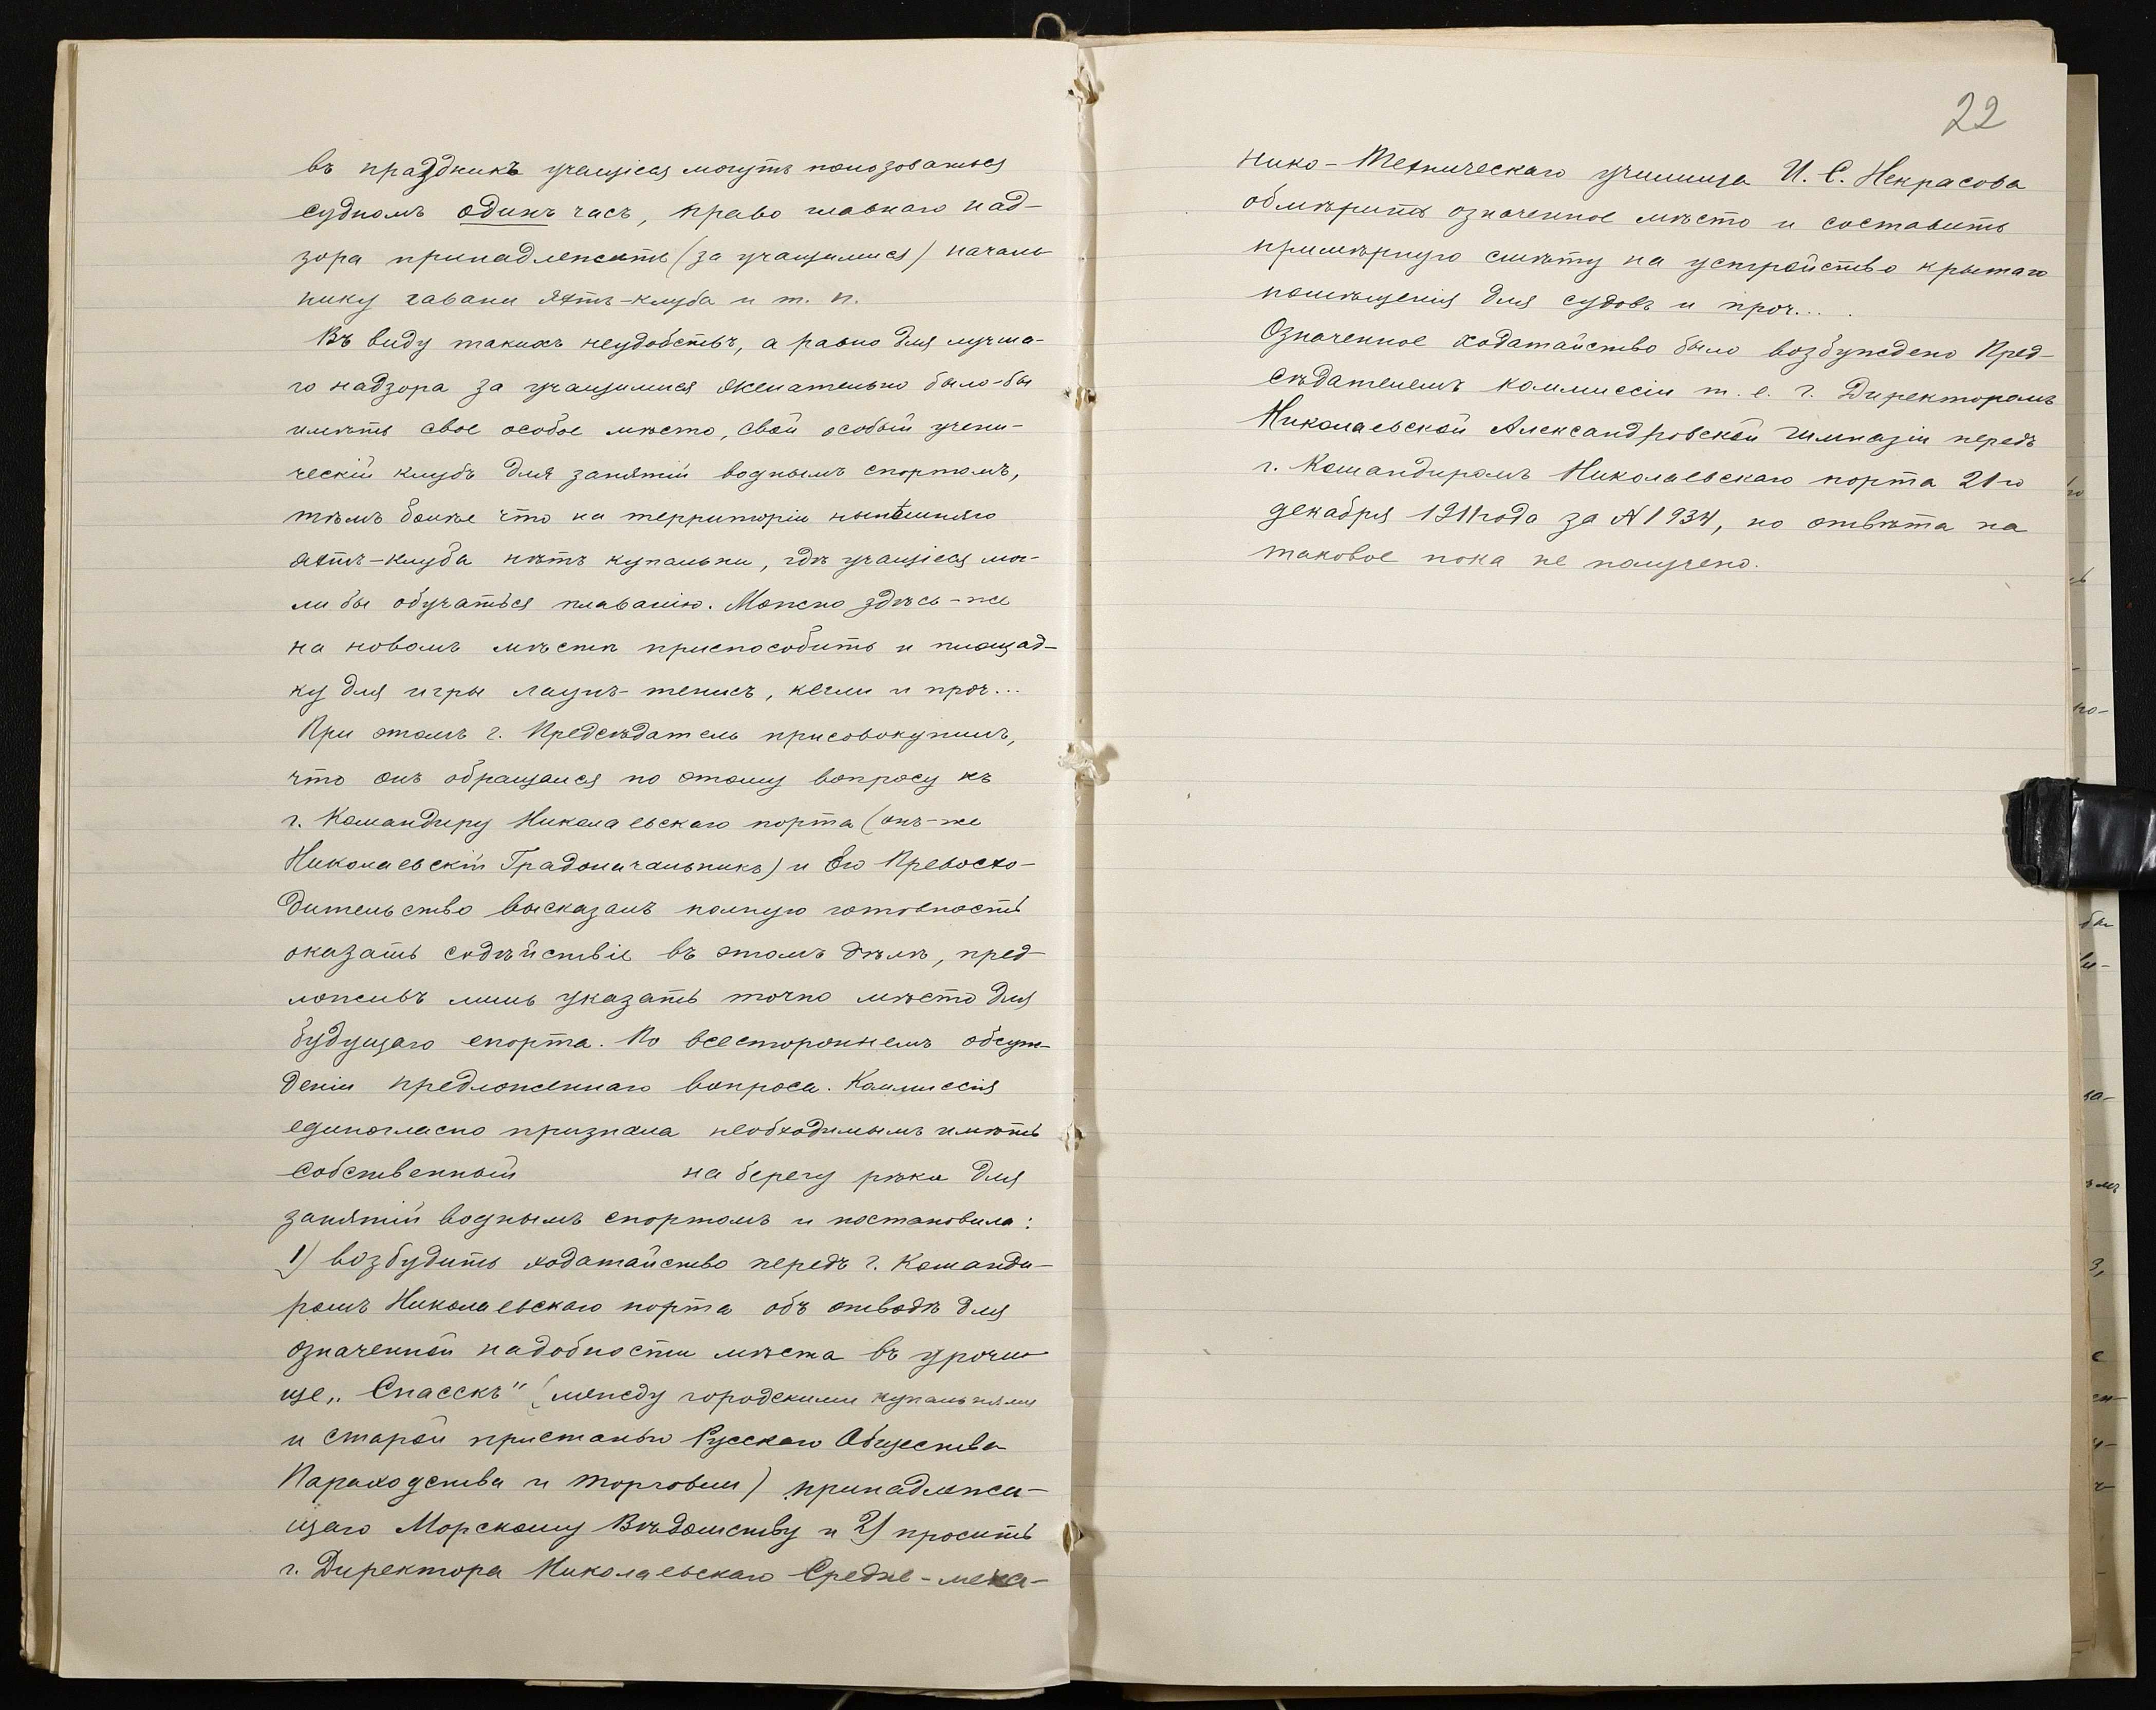 въ праздникъ учащіеся могутъ пользоваться
судномъ одинъ часъ, право главнаго над-
зора принадлежитъ (за учащимися) началь-
нику гавани Яхтъ-клуба и т. п.
Въ виду такихъ неудобствъ, а равно для лучша-
го надзора за учащимися желательно было-бы
имѣть свое особое мѣсто, свой особый учени-
ческій клубъ для занятій воднымъ спортомъ,
тѣмъ болѣе что на территоріи нынѣшняго
яхтъ-клуба нѣтъ купальни, гдѣ учащіеся мог-
ли бы обучаться плаванію. Можно здѣсь-же
на новомъ мѣстѣ приспособить и площад-
ку для игры лаунъ-тенисъ, кегли и проч...
При этомъ г. Предсѣдатель присовокупилъ,
что онъ обращался по этому вопросу къ
г. Командиру Николаевскаго порта (онъ-же
Николаевскій Градоначальникъ) и Его Превосхо-
дительство высказалъ полную готовность
оказать содѣйствіе въ этомъ дѣлѣ, пред-
ложивъ лишь указать точно мѣсто для
будущаго спорта. По всестороннемъ обсуж-
деніи предложеннаго вопроса. Коммиссія
единогласно признала необходимымъ имѣть
собственный на берегу рѣки для
занятій воднымъ спортомъ и постановила:
1) возбудить ходатайство передъ г. Команди-
ромъ Николаевскаго порта объ отводѣ для
означенной надобности мѣста въ урочи-
ще „Спасскъ" (между городскими купальнями
и старой пристанью Русскаго Общества
Пароходства и торговли) принадлежа-
щаго Морскому Вѣдомству и 2) просить
г. Директора Николаевскаго Средне-меха-
22
нико-Техническаго училища И. С. Некрасова
обмѣрить означенное мѣсто и составить
примѣрную смѣту на устройство крытаго
помѣщенія для судовъ и проч....
Означенное ходатайство было возбуждено Пред-
сѣдателемъ коммиссіи т. е. г. Директоромъ
Николаевской Александровской гимназіи передъ
г. Командиромъ Николаевскаго порта 21го
декабря 1911 года за № 1934, но отвѣта на
таковое пока не получено.